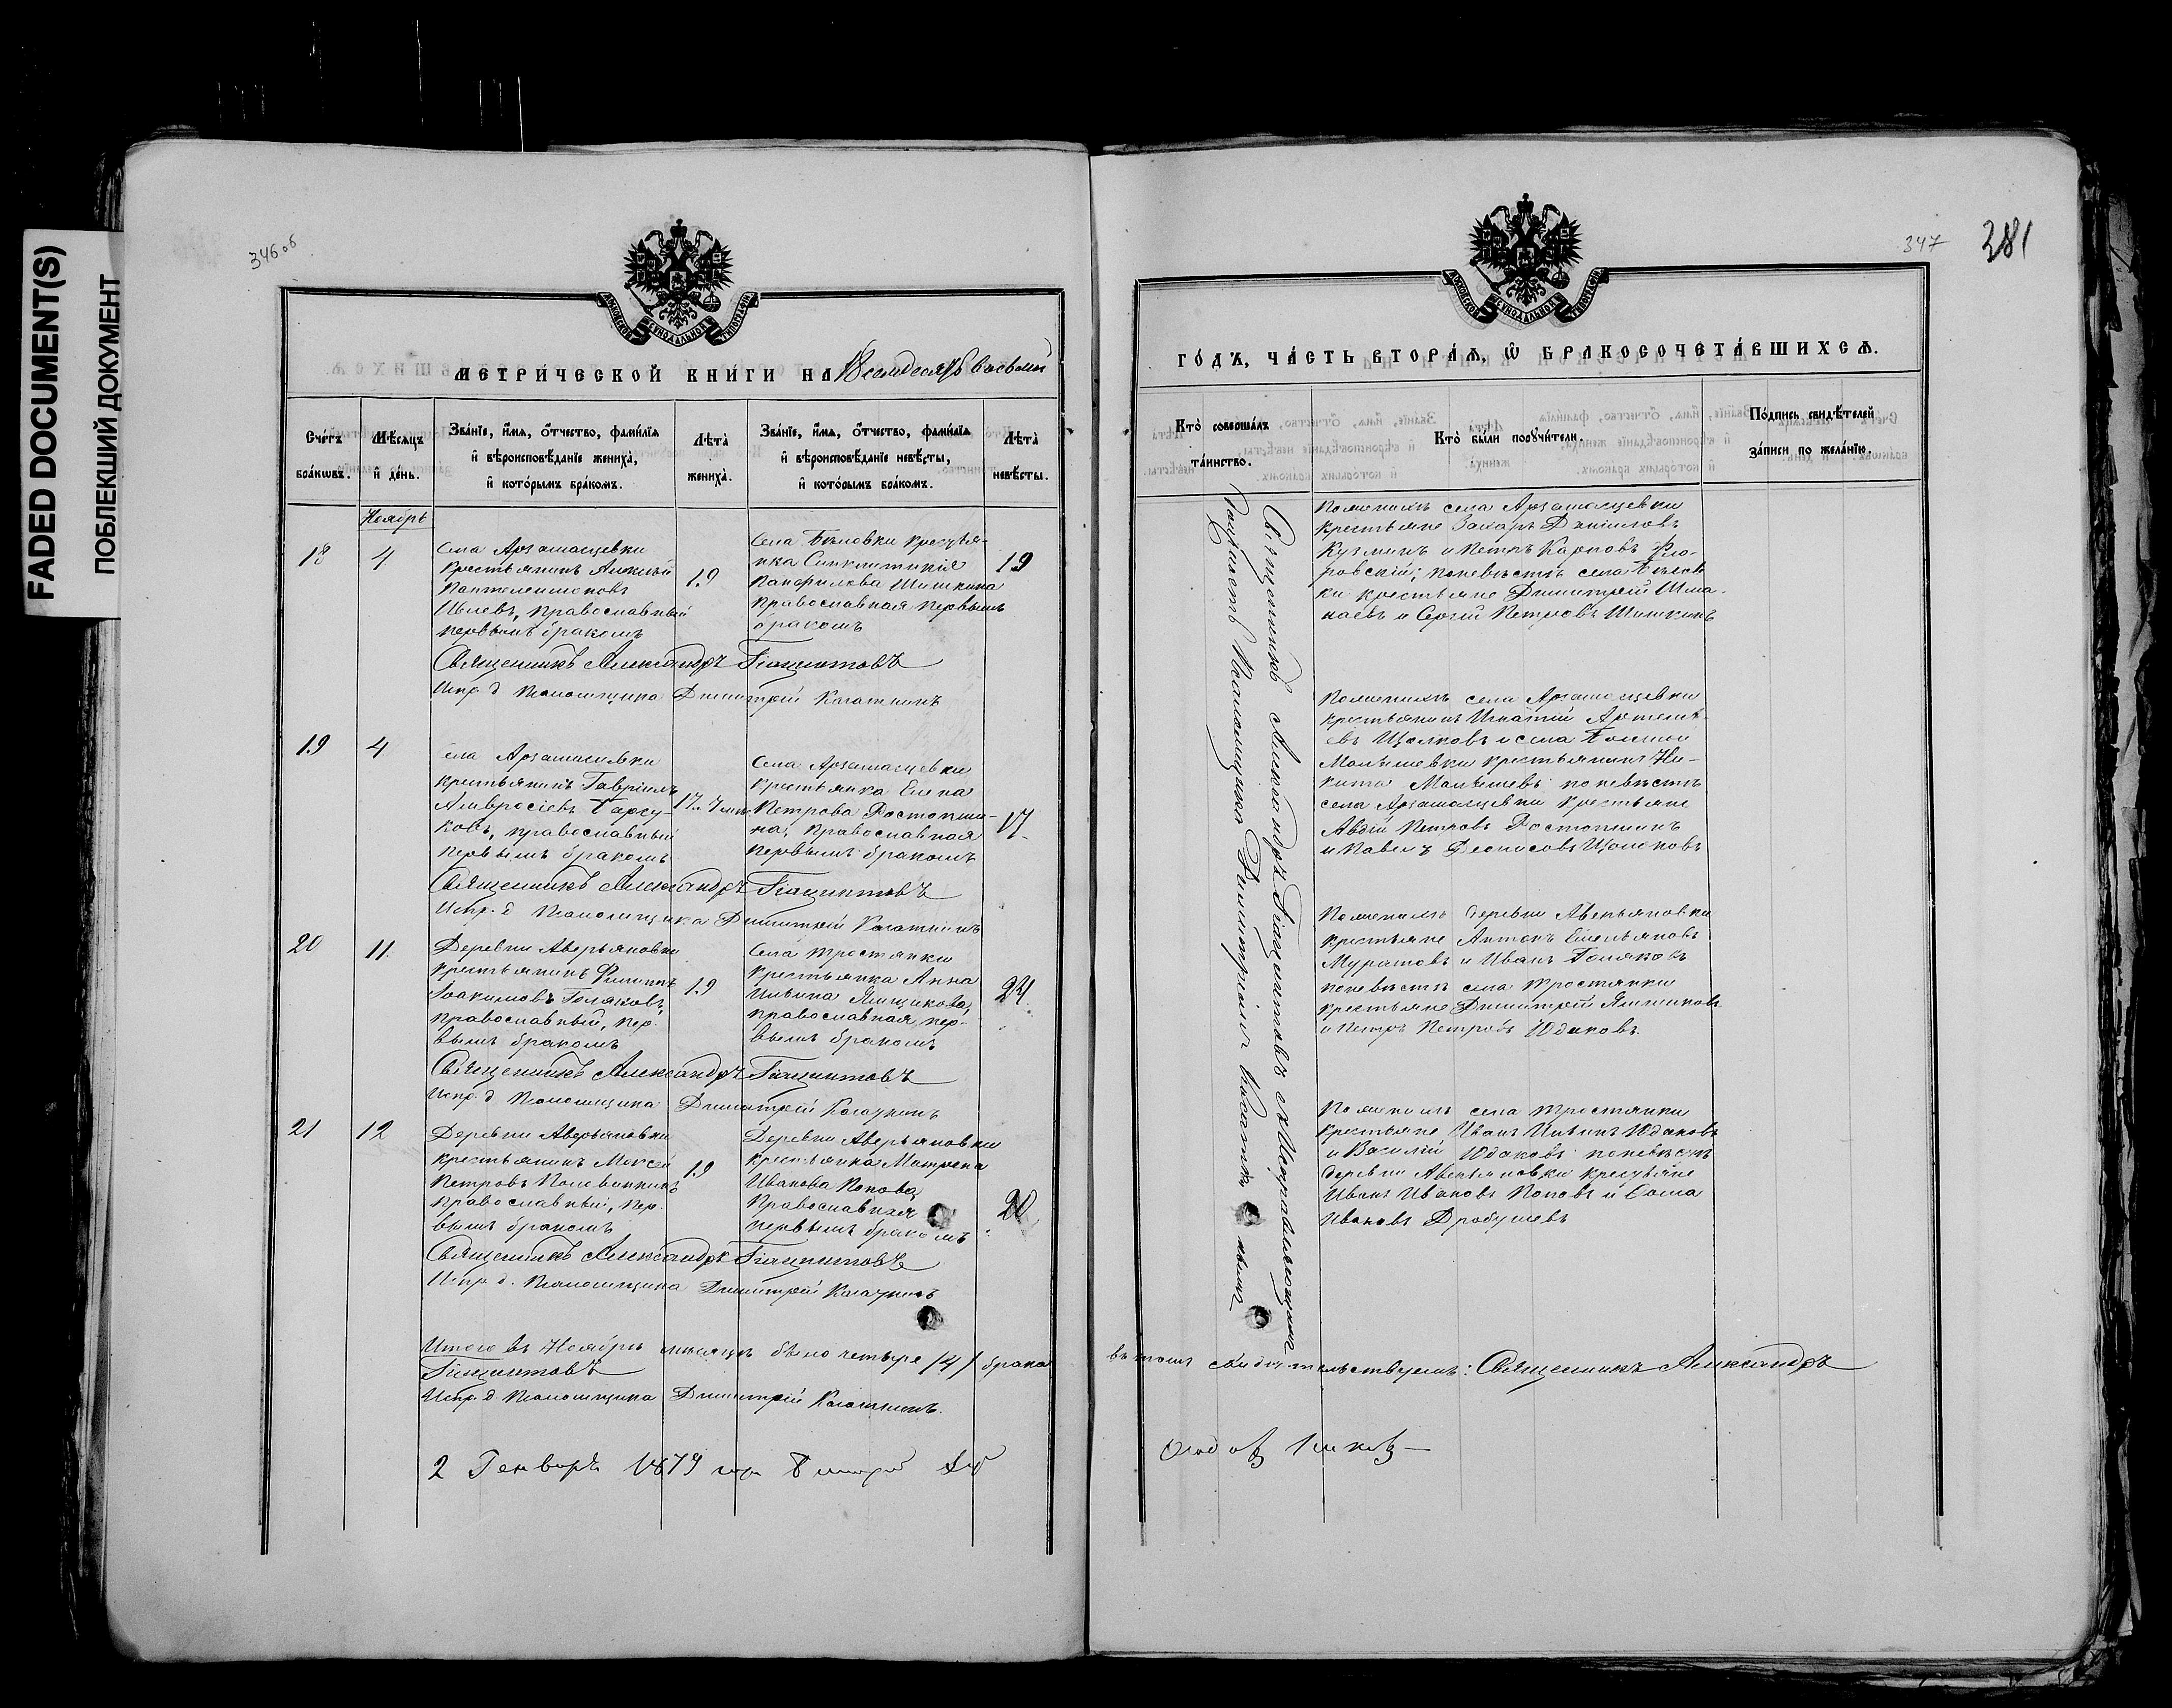 FADED DOCUMENT(S)
ПОБЛЕКШИЙ ДОКУМЕНТ
346 об
МЕТРИЧЕСКОЙ КНИГИ НА 18 семдесятъ восьмый
Счетъ браковъ.
Мѣсяцъ и день.
Званіе, имя, отчество, фамилія и вѣроисповѣданіе жениха, и которымъ бракомъ.
Лѣта жениха.
Званіе, имя, отчество, фамилія и вѣроисповѣданіе невѣсты, и которымъ бракомъ.
Лѣта невѣсты.
Ноябрь
18
4
Села Арзамасцевки
крестьянинъ Алексѣй
Пантелеимоновъ
Ивлевъ, православный
первымъ бракомъ
19
Села Бѣловки крестья-
нка Синклитикія
Панфилова Шишкина
православная первымъ
бракомъ
19
Священникъ Александръ Гіацинтовъ
Испр. д Псаломщика Дмитрій Касаткинъ
19
4
Села Арзамасцевки
крестьянинъ Гавріилъ
Амвросіевъ Барсу-
ковъ, православный
первымъ бракомъ
Села Арзамасцевки
крестьянка Елена
Петрова Растопши-
на, православная
первымъ бракомъ
17
Священникъ Александръ Гіацинтовъ
Испр. д Псаломщика Дмитрій Касаткинъ
20
11.
Деревни Аверьяновки
крестьянинъ Филиппъ
Іоакимовъ Поляковъ,
православный, пер-
вымъ бракомъ
19
Села Тростянки
крестьянка Анна
Ильина Ямщикова,
православная, пер-
вымъ бракомъ
24.
Священникъ Александръ Гіацинтовъ
Испр. д Псаломщика Дмитрій Касаткинъ
21
12
Деревни Аверьяновки
крестьянинъ Моксей
Петровъ
православный, пер-
вымъ бракомъ
19
Деревни Аверьяновки
крестьянка Матрена
Иванова Попова
православная
первымъ бракомъ
20
Священникъ Александръ Гіацинтовъ
Испр. д. Псаломщика Дмитрій Касаткинъ
Итого въ Ноябрѣ мѣсяцѣ было четыре /4/ брака
Гіацинтовъ
Испр. д Псаломщика Дмитрій Касаткинъ.
2 Генваря 1879 года
347
281
ГОДЪ, ЧАСТЬ ВТОРАЯ, Ѡ БРАКОСОЧЕТАВШИХСЯ.
Кто совершалъ таинство.
Кто были поручители.
Подпись свидѣтелей записи по желанію.
Священникъ Александръ Гіацинтовъ съ Исправляющимъ
должность Псаломщика Димитріемъ
По женихѣ села Арзамасцевки
крестьяне Захаръ Даниловъ
Кузминъ и Петръ Карповъ Фло-
ровскій; по невѣстѣ села Бѣлов-
ки крестьяне Димитрій Шма-
наевъ и Сергій Петровъ Шишкинъ
По женихѣ села Арзамасцевки
крестьянинъ Игнатій Артемь-
евъ Щолковъ и села Большой
Малышевки крестьянинъ Ни-
кита Малышевъ; по невѣстѣ
села Арзамасцевки крестьяне
Авдій Петровъ Растопшинъ
и Павелъ Денисовъ Щолоковъ
По женихѣ деревни Аверьяновки
крестьяне Антонъ Емельяновъ
Муратовъ и Иванъ Поляковъ
по невѣстѣ села Тростянки
крестьяне Димитрій Ямщиковъ
и Петръ Петровъ Юдаковъ.
По женихѣ села Тростянки
крестьяне Иванъ Ильинъ Юдаковъ
и Василій Юдаковъ по невѣстѣ
деревни Аверьяновки крестьяне
Иванъ Ивановъ Поповъ и Ѳома
Ивановъ Дробушевъ
въ томъ свидѣтельствуемъ: Священникъ Александръ